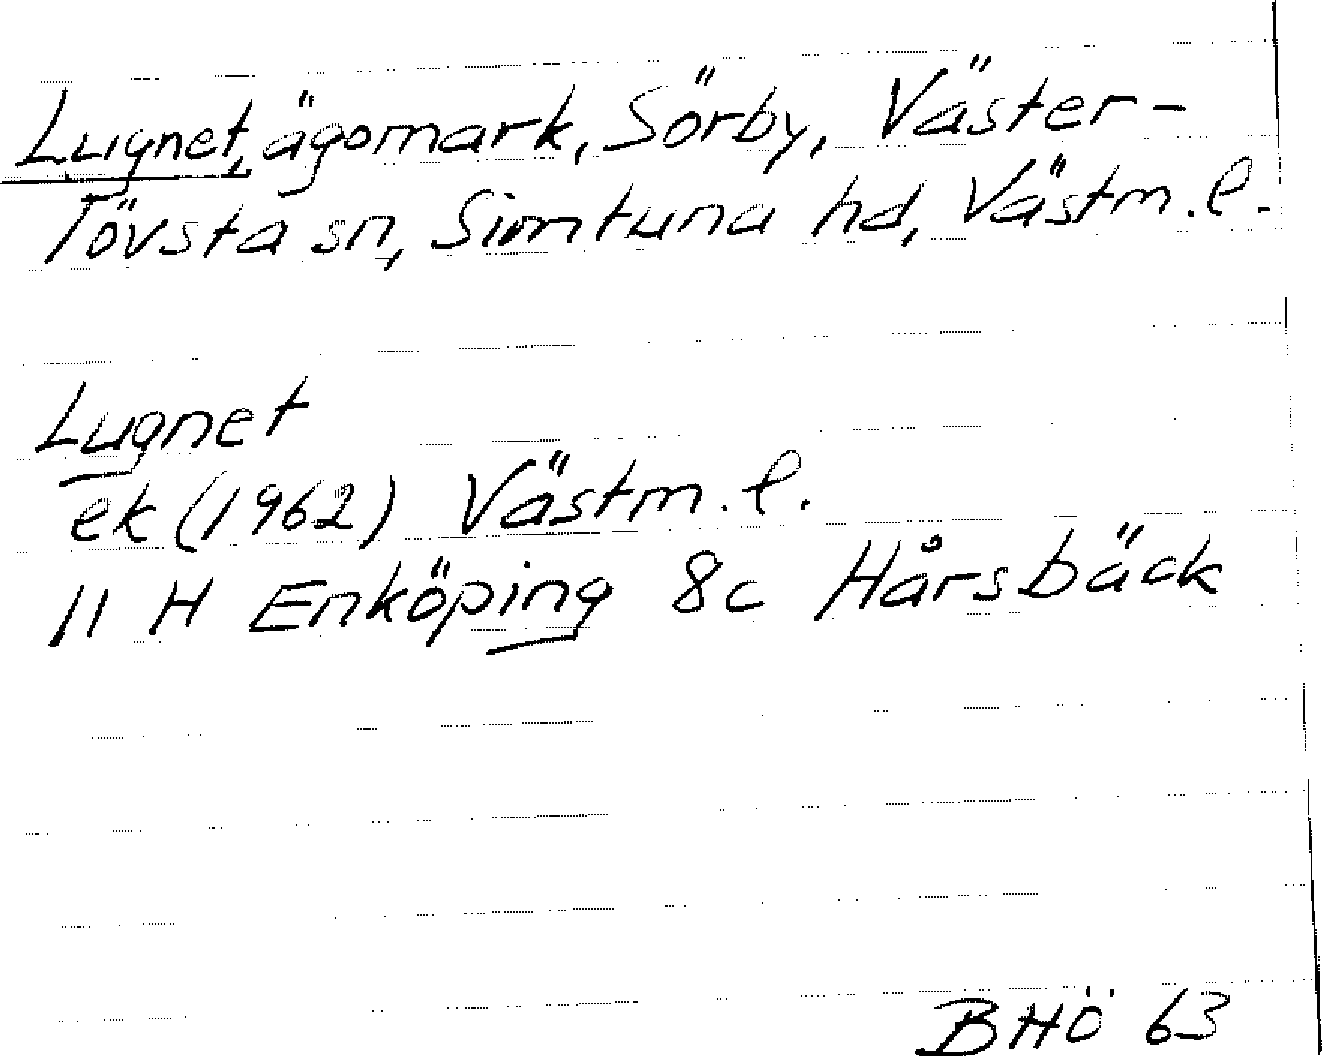 Lugnet, ägomark, Sörby, Väster-
Tövsta sn, Simtuna hd, Västm. l.
Lugnet
ek (1962) Västm. l.
11 H Enköping 8c Hårsbäck
BHÖ 63